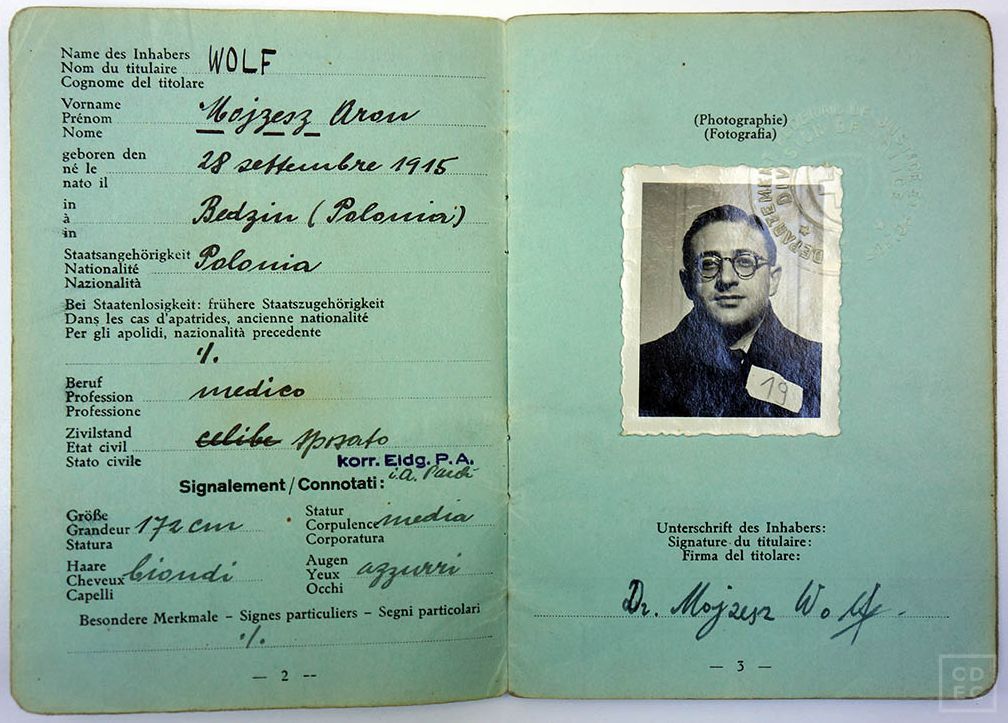 Name des Inhabers
Nom du titulaire WOLF
Cognome del titolare
Vorname
Prénom Mojzesz Aron
Nome
geboren den
né le 28 settembre 1915
nato il
in
à Bedzin (Polonia)
in
Staatsangehörigkeit
Nationalité Polonia
Nazionalità
Bei Staatenlosigkeit: frühere Staatszugehörigkeit
Dans les cas d'apatrides, ancienne nationalité
Per gli apolidi, nazionalità precedente
·/.
Beruf
Profession medico
Professione
Zivilstand
Etat civil celibe sposato
Stato civile korr. Eidg. P.A.
i.A.
Signalement/Connotati:
Größe
Grandeur 172 cm
Statura
Statur
Corpulence media
Corporatura
Haare
Cheveux biondi
Capelli
Augen
Yeux azzurri
Occhi
Besondere Merkmale – Signes particuliers – Segni particolari
·/.
— 2 --
(Photographie)
(Fotografia)
DEPARTEMENT
DIVISION DE
19
Unterschrift des Inhabers:
Signature du titulaire:
Firma del titolare:
Dr. Mojzesz Wolf.
— 3 —
CD
EC